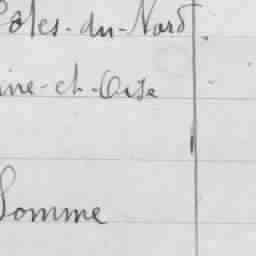 Côtes-du-Nord
ine-et-Oise
Somme